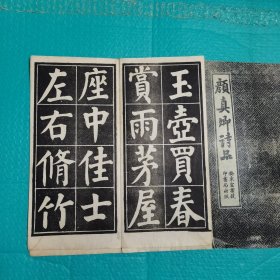 顏真卿詩品
玉壺買春
賞雨茅屋
座中佳士
左右脩竹